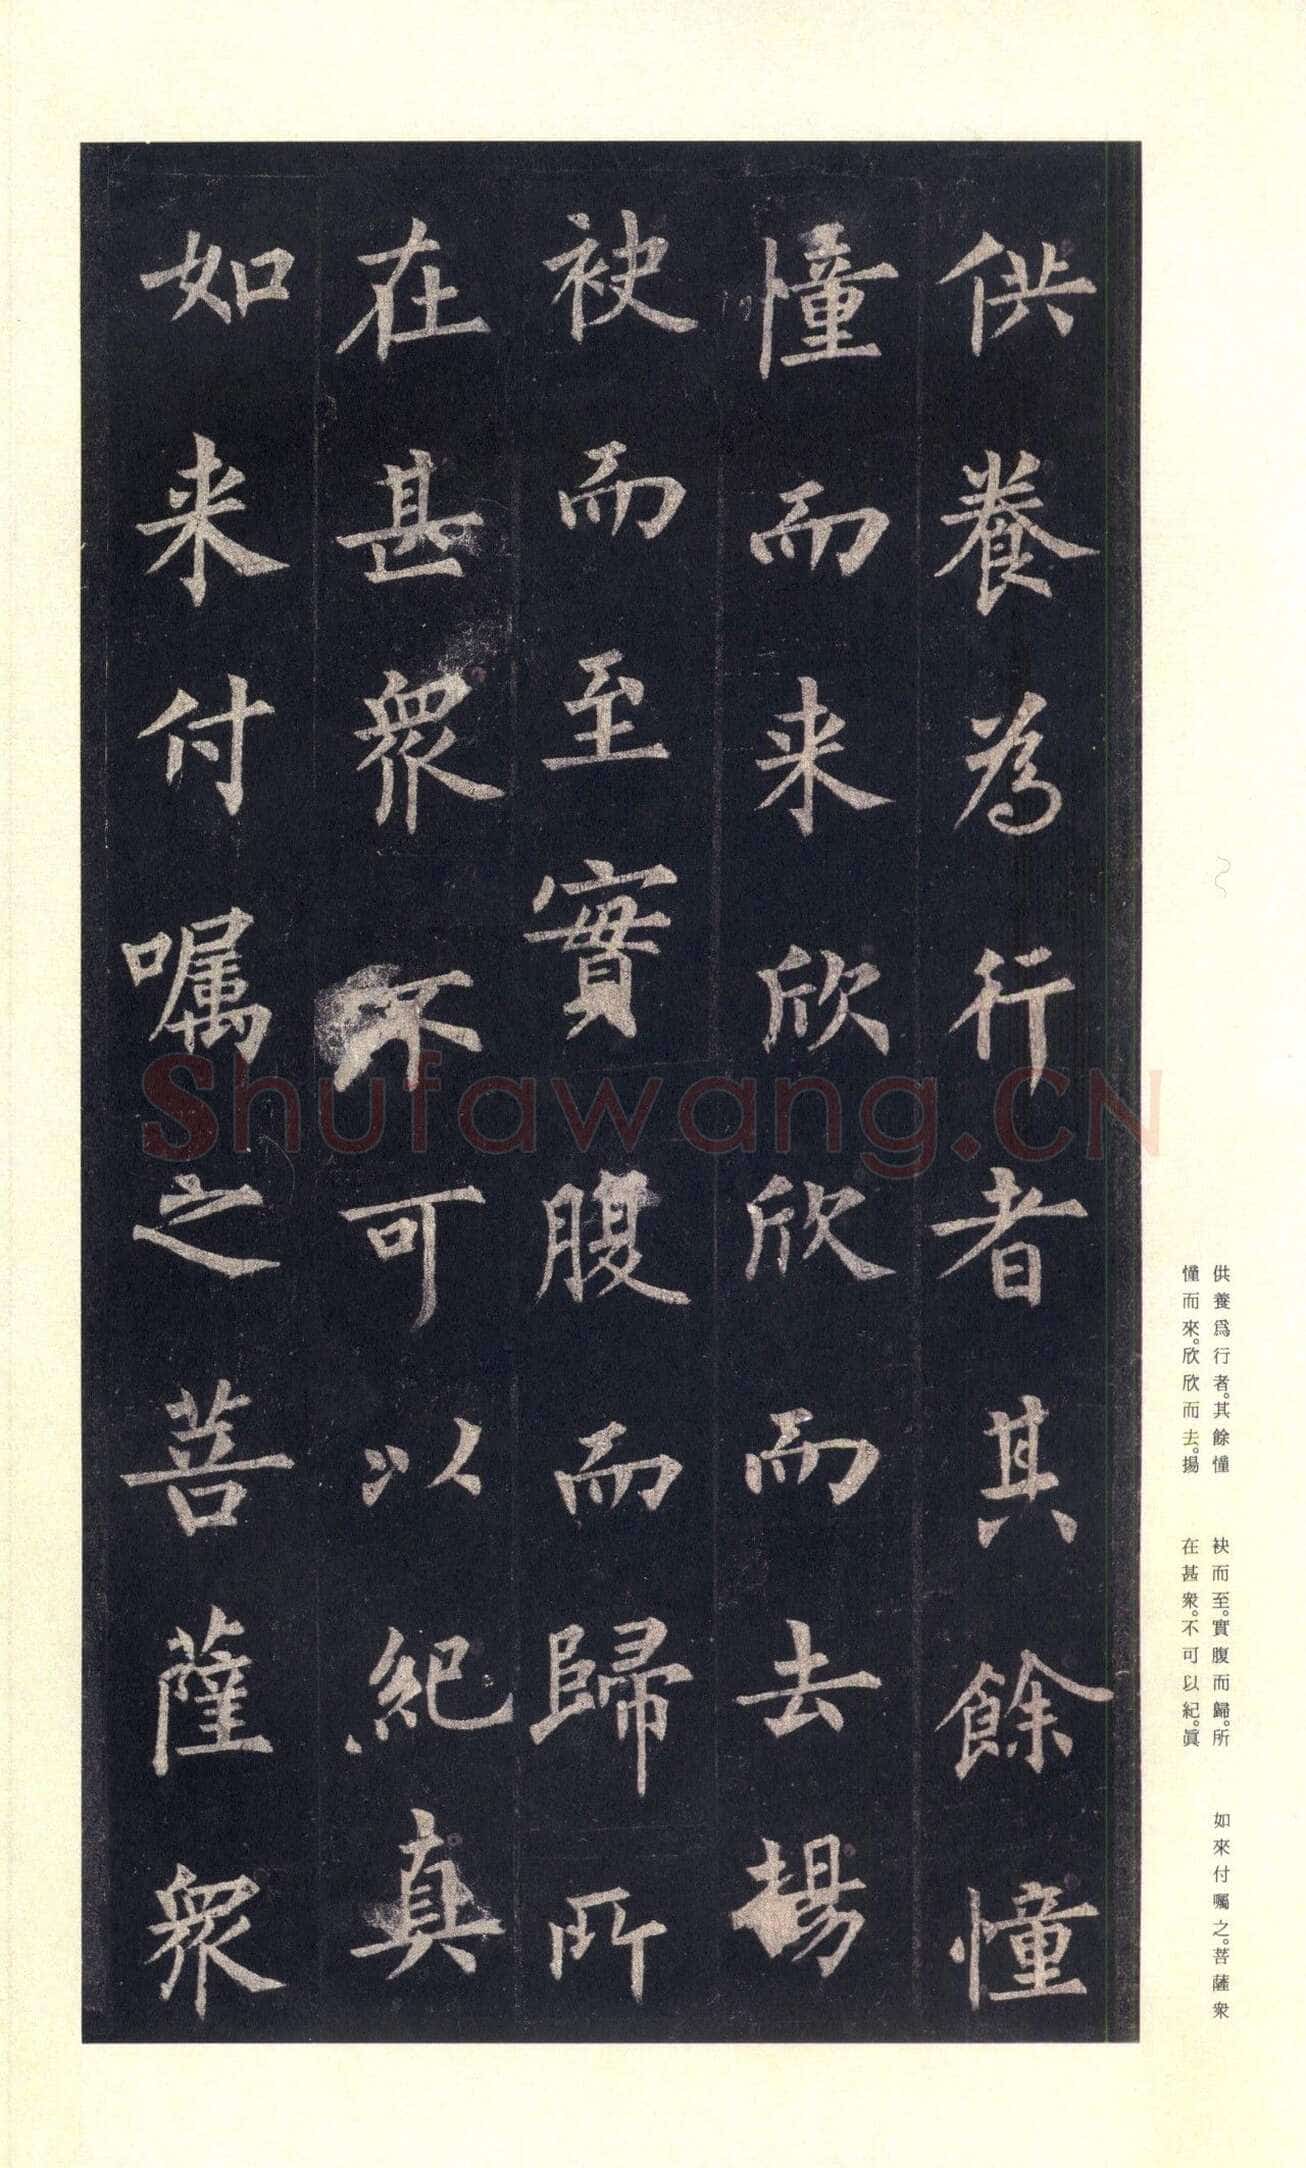 供養為行者其餘憧
憧而来欣欣而去揚
袂而至實腹而歸所
在甚衆不可以紀真
如来付嘱之菩薩衆
供養爲行者。其餘憧
憧而來。欣欣而去。揚
袂而至。實腹而歸。所
在甚衆。不可以紀。眞
如來付囑之。菩薩衆
Shufawang.CN